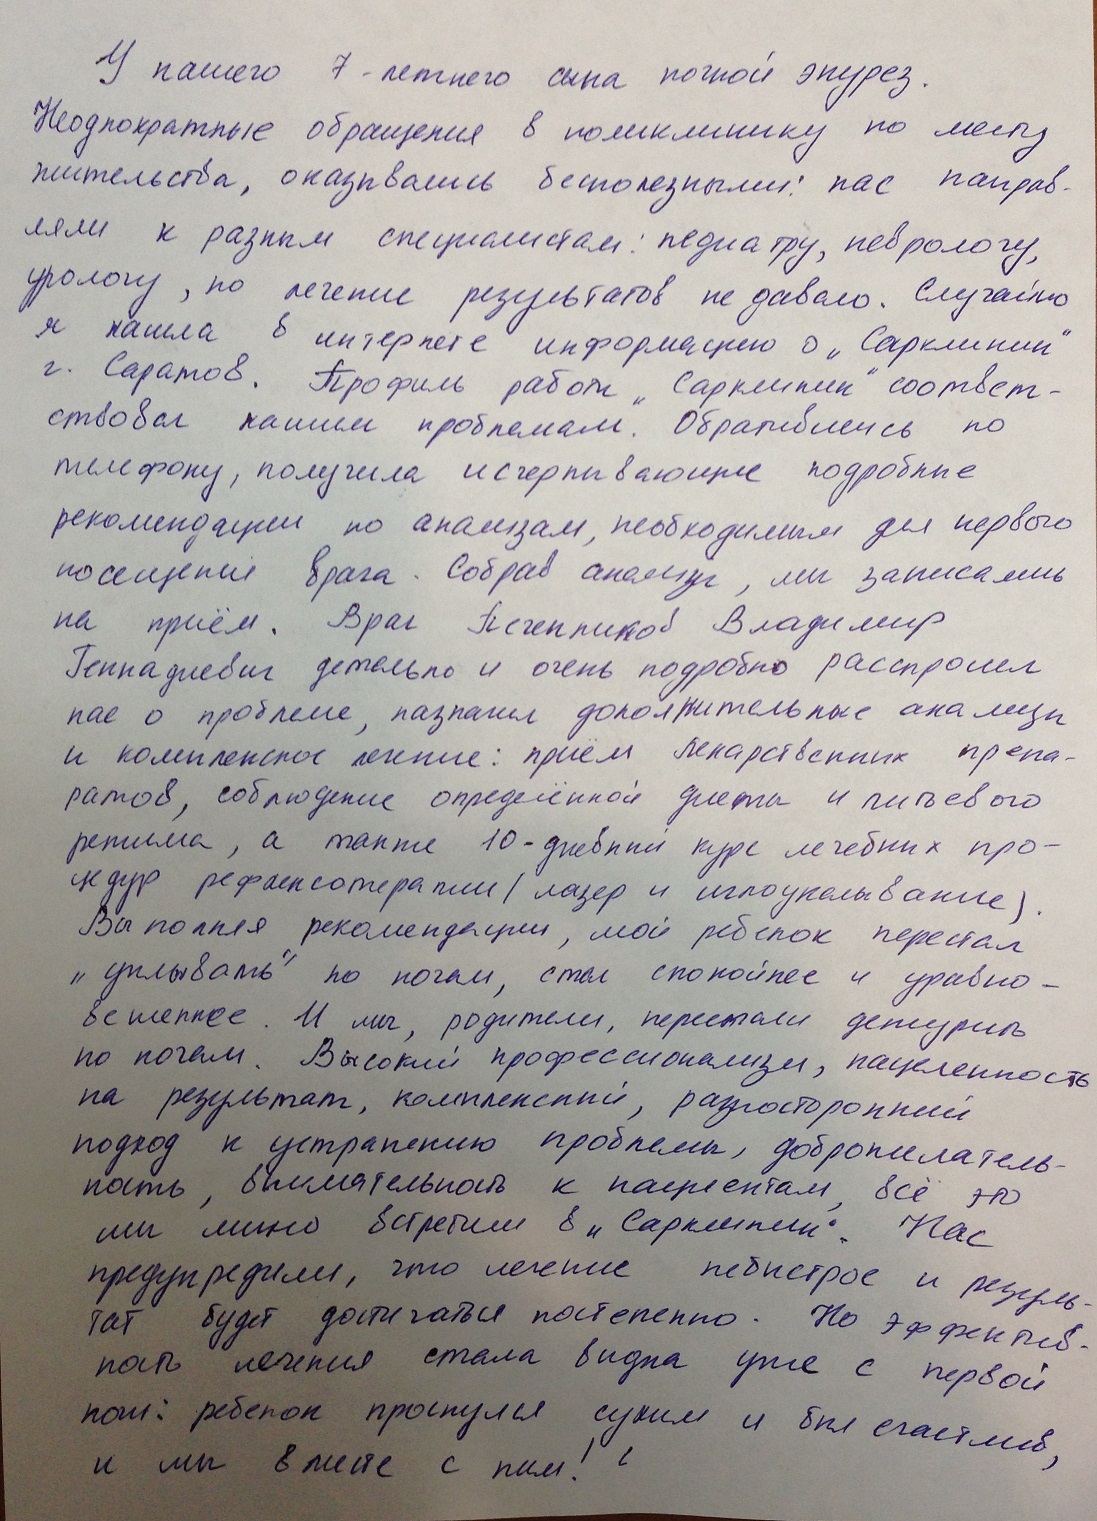 У нашего 7-летнего сына ночной энурез.
Неоднократные обращения в поликлинику по месту
жительства, оказывались бесполезными: нас направ-
ляли к разным специалистам: педиатру, неврологу,
урологу, но лечение результатов не давало. Случайно
я нашла в интернете информацию о „Сарклиник“
г. Саратов. Профиль работы „Сарклиник“ соответ-
ствовал нашим проблемам. Обратившись по
телефону, получила исчерпывающие подробные
рекомендации по анализам, необходимым для первого
посещения врача. Собрав анализы, мы записались
на приём. Врач Печенников Владимир
Геннадиевич детально и очень подробно расспросил
нас о проблеме, назначил дополнительные анализы
и комплексное лечение: приём лекарственных препа-
ратов, соблюдение определённой диеты и питьевого
режима, а также 10-дневный курс лечебных про-
цедур рефлексотерапии (лазер и иглоукалывание).
Выполняя рекомендации, мой ребенок перестал
„уплывать“ по ночам, стал спокойнее и уравно-
вешеннее. И мы, родители, перестали дежурить
по ночам. Высокий профессионализм, нацеленность
на результат, комплексный, разносторонний
подход к устранению проблемы, доброжелатель-
ность, внимательность к пациентам, всё это
мы лично встретили в „Сарклиник“. Нас
предупредили, что лечение небыстрое и резуль-
тат будет достигаться постепенно. Но эффектив-
ность лечения стала видна уже с первой
ночи: ребенок проснулся сухим и был счастлив,
и мы вместе с ним!